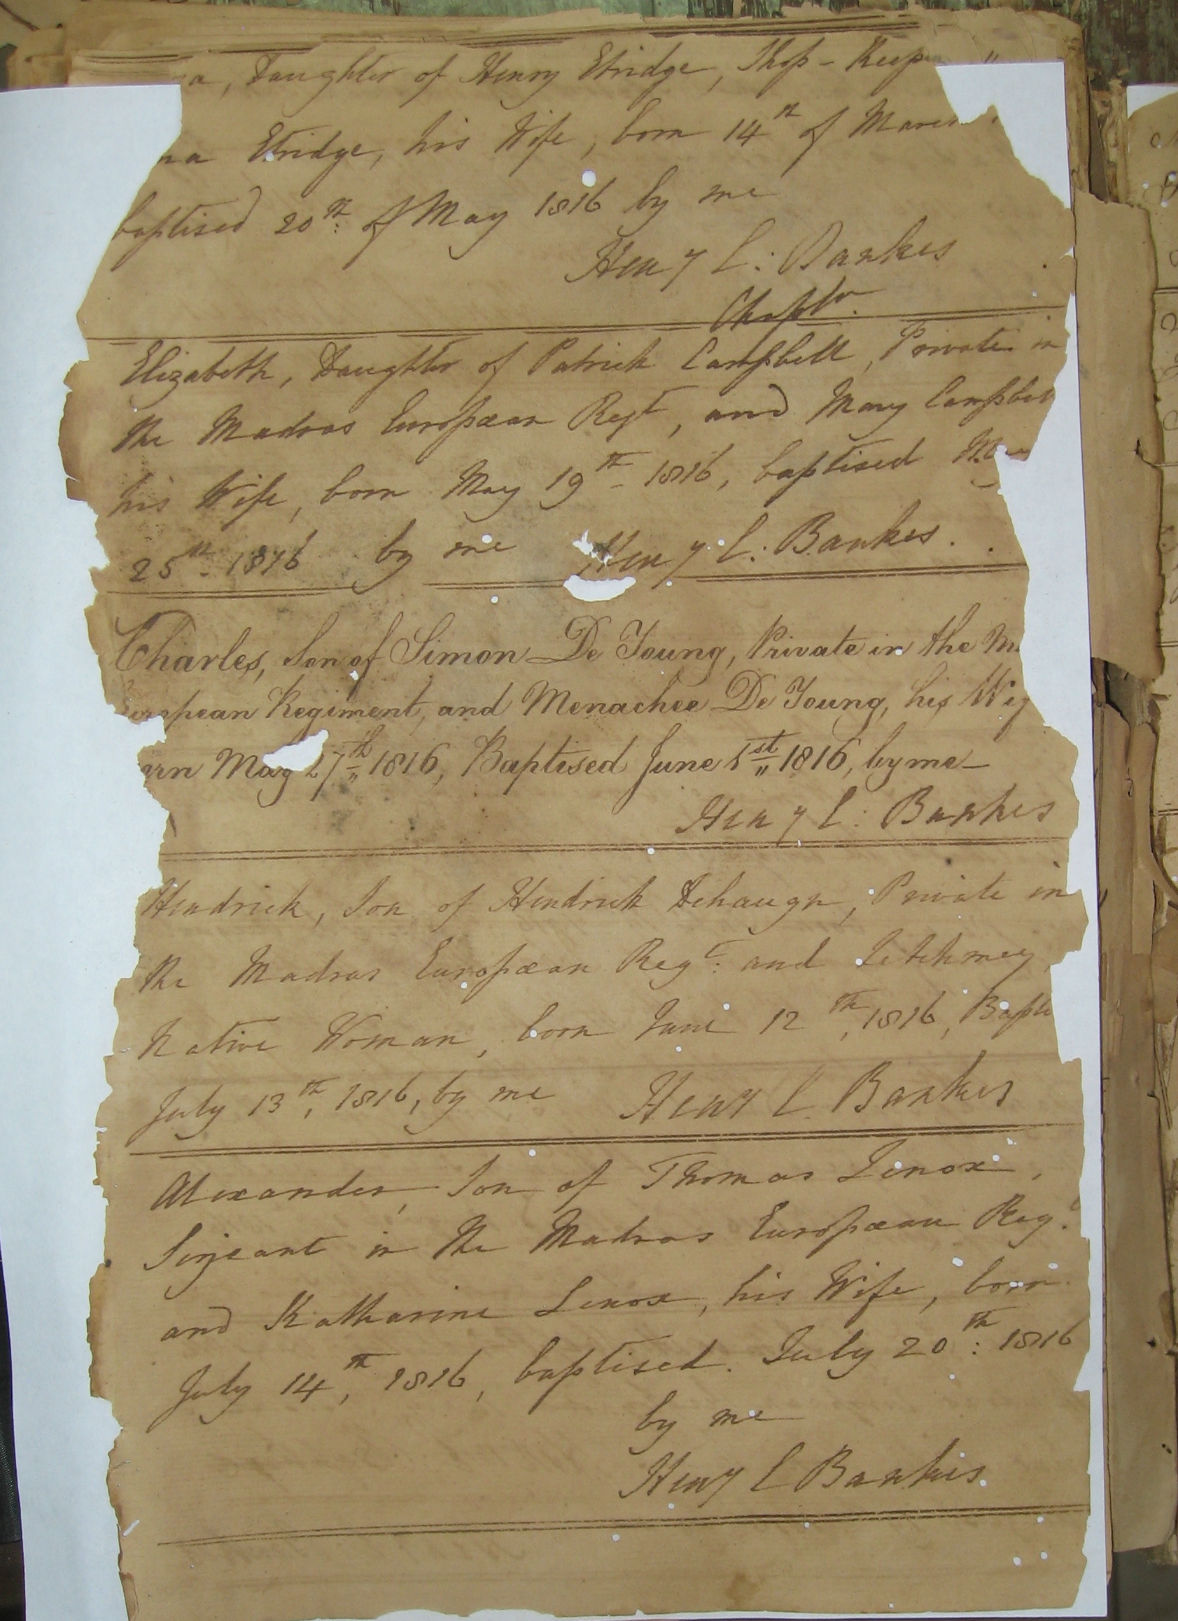 a, Daughter of Henry Etridge, Shop-Keep
na Etridge, his Wife, born 14th of Marc
baptised 20th: of May 1816 by me
Heny L: Bankes
Chapln.
Elizabeth, Daughter of Patrick Campbell, Private in
the Madras European Regt, and Mary Campbell
his Wife, born May 19th 1816, baptised Ma
25th 1816 by me Heny L: Bankes.
Charles, Son of Simon De Young, Private in the M
European Regiment, and Menachee De Young, his Wif
orn May 27th 1816, Baptised June 1st 1816, by me
Heny L: Bankes
Hendrick, Son of Hendrick Dehaugn, Private in
the Madras European Regt: and Letchmey
Native Woman, born June 12th, 1816, Bapti
July 13th, 1816, by me Heny L Bankes
Alexander, Son of Thomas Lenox,
Serjeant in the Madras European Regt
and Katharine Lenox, his Wife, born
July 14th, 1816, baptised. July 20th: 1816
by me
Heny L Bankes